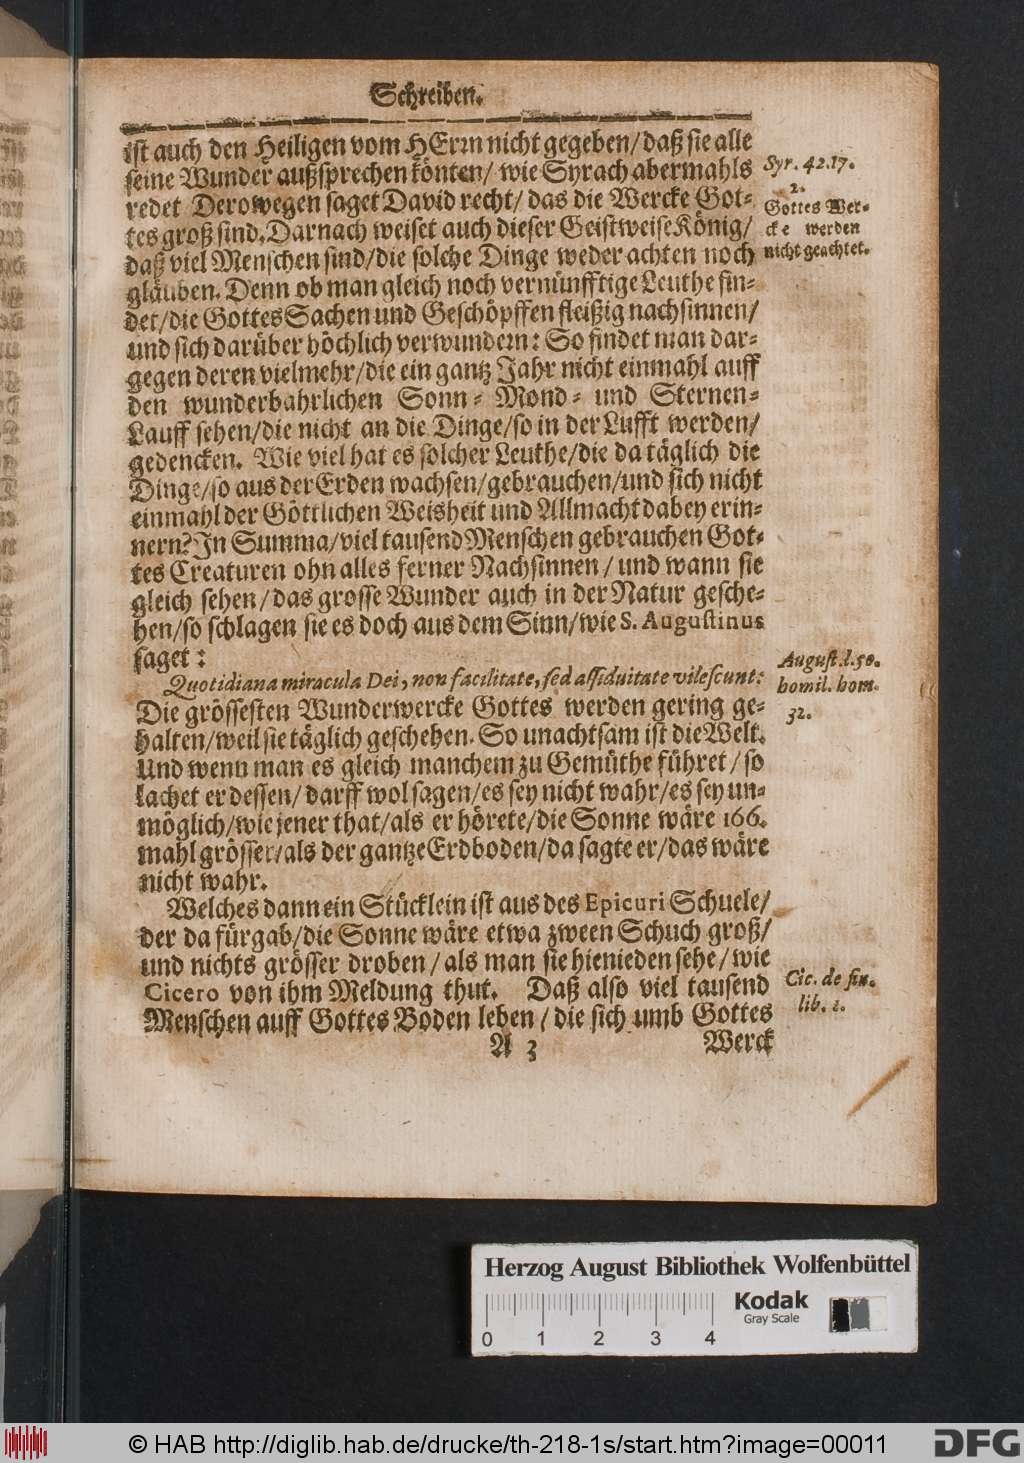 Schreiben.
ist auch den Heiligen vom HErrn nicht gegeben/ daß sie alle
seine Wunder außsprechen könten/ wie Syrach abermahls
redet Derowegen saget David recht/ das die Wercke Got-
tes groß sind. Darnach weiset auch dieser Geistweise König/
daß viel Menschen sind/die solche Dinge weder achten noch
gläuben. Denn ob man gleich noch vernünfftige Leuthe fin-
det/die Gottes Sachen und Geschöpffen fleißig nachsinnen/
und sich darüber höchlich verwundern: So findet man dar-
gegen deren vielmehr/die ein gantz Jahr nicht einmahl auff
den wunderbahrlichen Sonn- Mond- und Sternen-
Lauff sehen/die nicht an die Dinge/so in der Lufft werden/
gedencken. Wie viel hat es solcher Leuthe/die da täglich die
Dinge/so aus der Erden wachsen/gebrauchen/und sich nicht
einmahl der Göttlichen Weisheit und Allmacht dabey erin-
nern? In Summa/viel tausend Menschen gebrauchen Got-
tes Creaturen ohn alles ferner Nachsinnen/ und wann sie
gleich sehen/das grosse Wunder auch in der Natur gesche-
hen/so schlagen sie es doch aus dem Sinn/wie S. Augustinus
saget:
Quotidiana miracula Dei, non facilitate, sed assiduitate vilescunt:
Die grössesten Wunderwercke Gottes werden gering ge-
halten/weil sie täglich geschehen. So unachtsam ist die Welt.
Und wenn man es gleich manchem zu Gemüthe führet/ so
lachet er dessen/ darff wol sagen/es sey nicht wahr/es sey un-
möglich/wie jener that/als er hörete/die Sonne wäre 166.
mahl grösser/als der gantze Erdboden/da sagte er/das wäre
nicht wahr.
Welches dann ein Stücklein ist aus des Epicuri Schuele/
der da fürgab/die Sonne wäre etwa zween Schuch groß/
und nichts grösser droben/als man sie hienieden sehe/ wie
Cicero von ihm Meldung thut. Daß also viel tausend
Menschen auff Gottes Boden leben/ die sich umb Gottes
A 3 Werck
Syr. 42.17.
2.
Gottes Wer-
cke werden
nicht geachtet.
August. l. 50.
homil. hom.
32.
Cic. de fin.
lib. 1.
Herzog August Bibliothek Wolfenbüttel
Kodak
Gray Scale
0 1 2 3 4
© HAB http://diglib.hab.de/drucke/th-218-1s/start.htm?image=00011
DFG